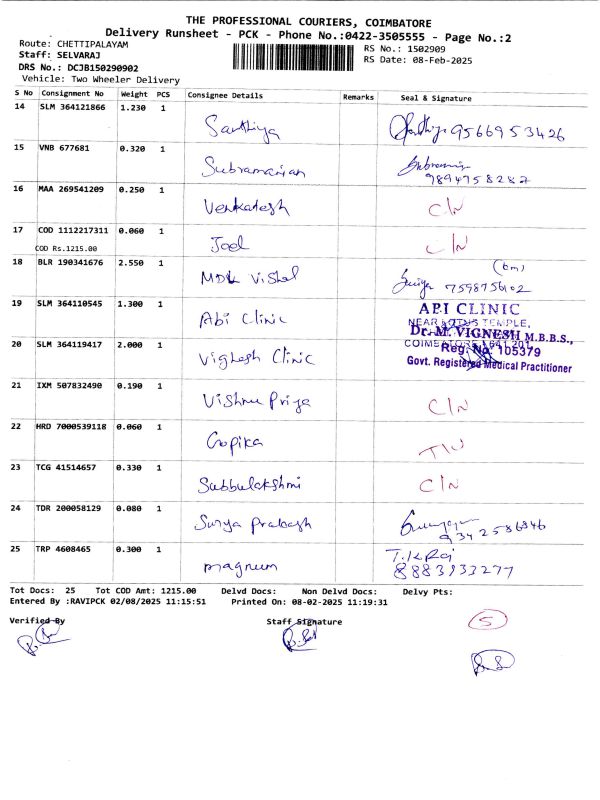 THE PROFESSIONAL COURIERS, COIMBATORE
Delivery Runsheet - PCK - Phone No.:0422-3505555 - Page No.:2
Route: CHETTIPALAYAM
RS No.: 1502909
Staff: SELVARAJ
RS Date: 08-Feb-2025
DRS No.: DCJB150290902
Vehicle: Two Wheeler Delivery
S No Consignment No Weight PCS Consignee Details Remarks Seal & Signature
14 SLM 364121866 1.230 1 Santhiya 9566953426
15 VNB 677681 0.320 1 Subramanian 9894758287
16 MAA 269541209 0.250 1 Venkatesh C/N
17 COD 1112217311 0.060 1 Joel C/N
COD Rs.1215.00
18 BLR 190341676 2.550 1 MDK Vishal 7598756102
19 SLM 364110545 1.300 1 Abi Clinic
ABI CLINIC
NEAR LOTUS TEMPLE,
Dr. M. VIGNESH M.B.B.S.,
20 SLM 364119417 2.000 1 Vighesh Clinic
COIMBATORE 641 201.
Reg. No: 105379
Govt. Registered Medical Practitioner
21 IXM 507832490 0.190 1 Vishnu Priya C/N
22 HRD 7000539118 0.060 1 Gopika
23 TCG 41514657 0.330 1 Subbulakshmi C/N
24 TDR 200058129 0.080 1 Surya Prakash 9342586346
25 TRP 4608465 0.300 1 magnum T.K Raj
8883933277
Tot Docs: 25 Tot COD Amt: 1215.00 Delvd Docs: Non Delvd Docs: Delvy Pts:
Entered By :RAVIPCK 02/08/2025 11:15:51 Printed On: 08-02-2025 11:19:31
Verified By Staff Signature 5